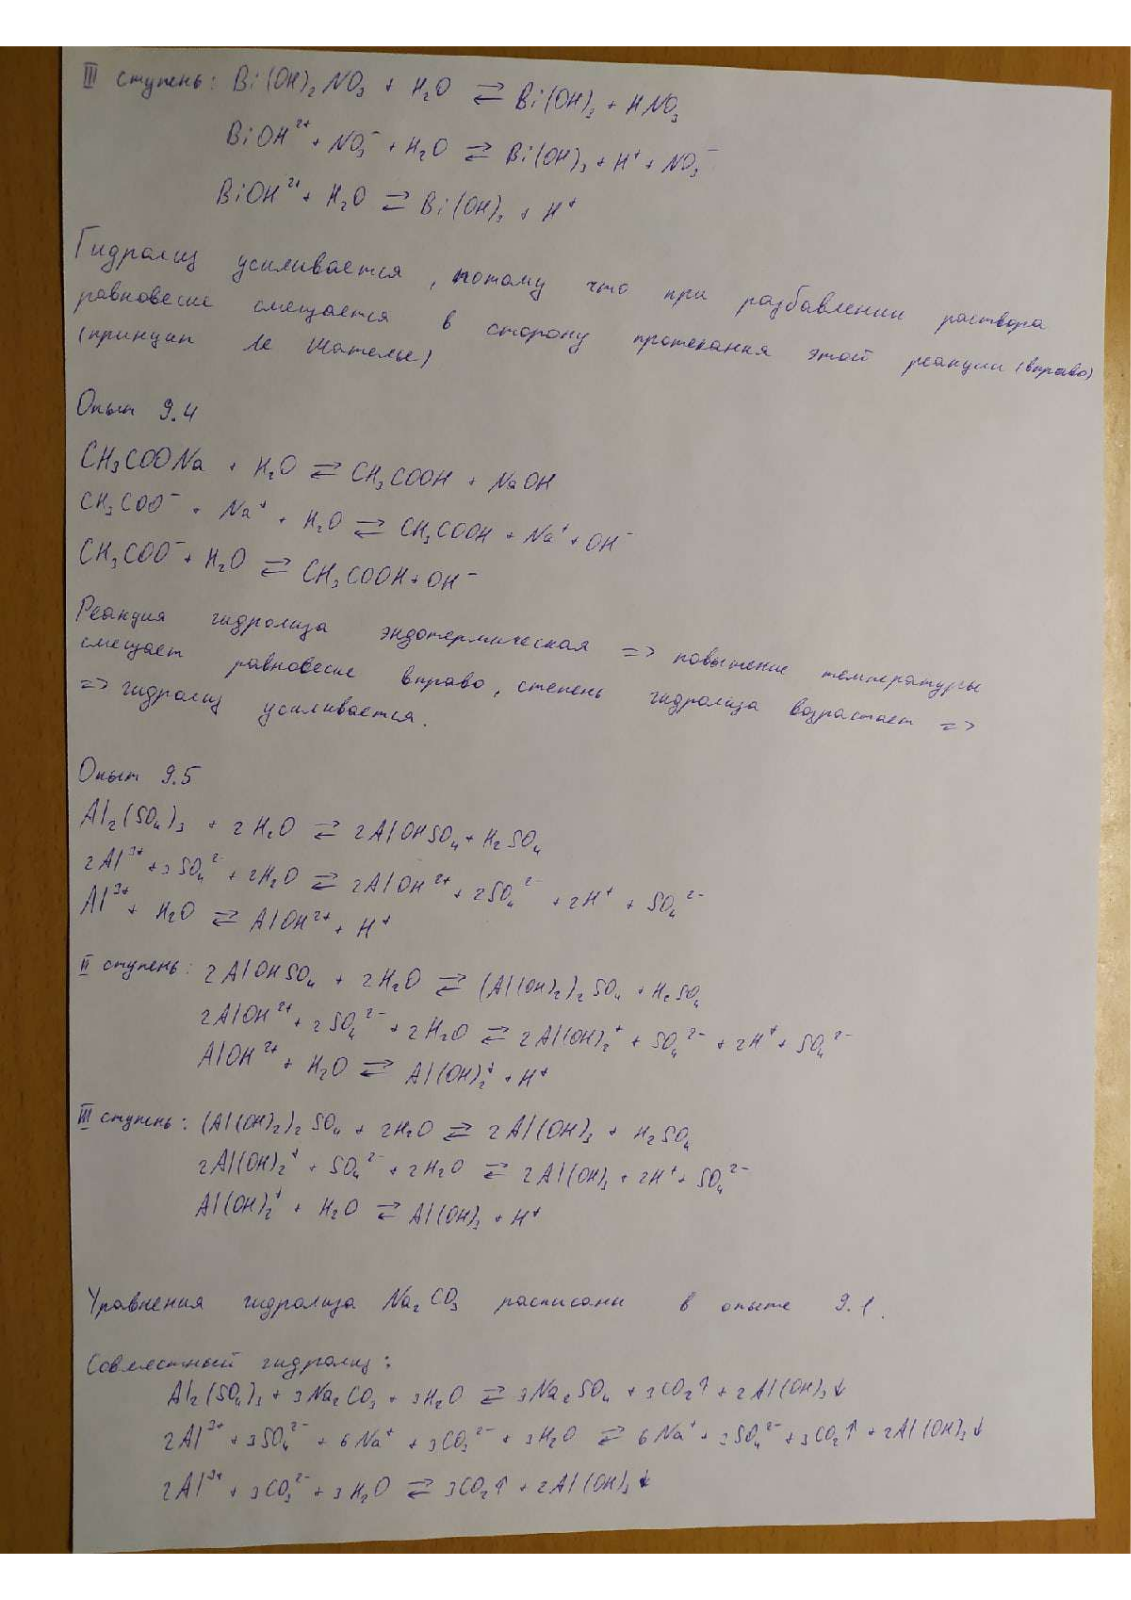 III ступень: Bi(OH)₂NO₃ + H₂O ⇄ Bi(OH)₃ + HNO₃
BiOH²⁺ + NO₃⁻ + H₂O ⇄ Bi(OH)₃ + H⁺ + NO₃⁻
BiOH²⁺ + H₂O ⇄ Bi(OH)₃ + H⁺
Гидролиз усиливается, потому что при разбавлении раствора
равновесие смещается в сторону протекания этой реакции (вправо)
(принцип Ле Шателье)
Опыт 9.4
CH₃COONa + H₂O ⇄ CH₃COOH + NaOH
CH₃COO⁻ + Na⁺ + H₂O ⇄ CH₃COOH + Na⁺ + OH⁻
CH₃COO⁻ + H₂O ⇄ CH₃COOH + OH⁻
Реакция гидролиза эндотермическая => повышение температуры
смещает равновесие вправо, степень гидролиза возрастает =>
=> гидролиз усиливается.
Опыт 9.5
Al₂(SO₄)₃ + 2H₂O ⇄ 2AlOHSO₄ + H₂SO₄
2Al³⁺ + 3SO₄²⁻ + 2H₂O ⇄ 2AlOH²⁺ + 2SO₄²⁻ + 2H⁺ + SO₄²⁻
Al³⁺ + H₂O ⇄ AlOH²⁺ + H⁺
II ступень: 2AlOHSO₄ + 2H₂O ⇄ (Al(OH)₂)₂SO₄ + H₂SO₄
2AlOH²⁺ + 2SO₄²⁻ + 2H₂O ⇄ 2Al(OH)₂⁺ + SO₄²⁻ + 2H⁺ + SO₄²⁻
AlOH²⁺ + H₂O ⇄ Al(OH)₂⁺ + H⁺
III ступень: (Al(OH)₂)₂SO₄ + 2H₂O ⇄ 2Al(OH)₃ + H₂SO₄
2Al(OH)₂⁺ + SO₄²⁻ + 2H₂O ⇄ 2Al(OH)₃ + 2H⁺ + SO₄²⁻
Al(OH)₂⁺ + H₂O ⇄ Al(OH)₃ + H⁺
Уравнения гидролиза Na₂CO₃ расписаны в опыте 9.1.
Совместный гидролиз:
Al₂(SO₄)₃ + 3Na₂CO₃ + 3H₂O ⇄ 3Na₂SO₄ + 3CO₂↑ + 2Al(OH)₃↓
2Al³⁺ + 3SO₄²⁻ + 6Na⁺ + 3CO₃²⁻ + 3H₂O ⇄ 6Na⁺ + 3SO₄²⁻ + 3CO₂↑ + 2Al(OH)₃↓
2Al³⁺ + 3CO₃²⁻ + 3H₂O ⇄ 3CO₂↑ + 2Al(OH)₃↓